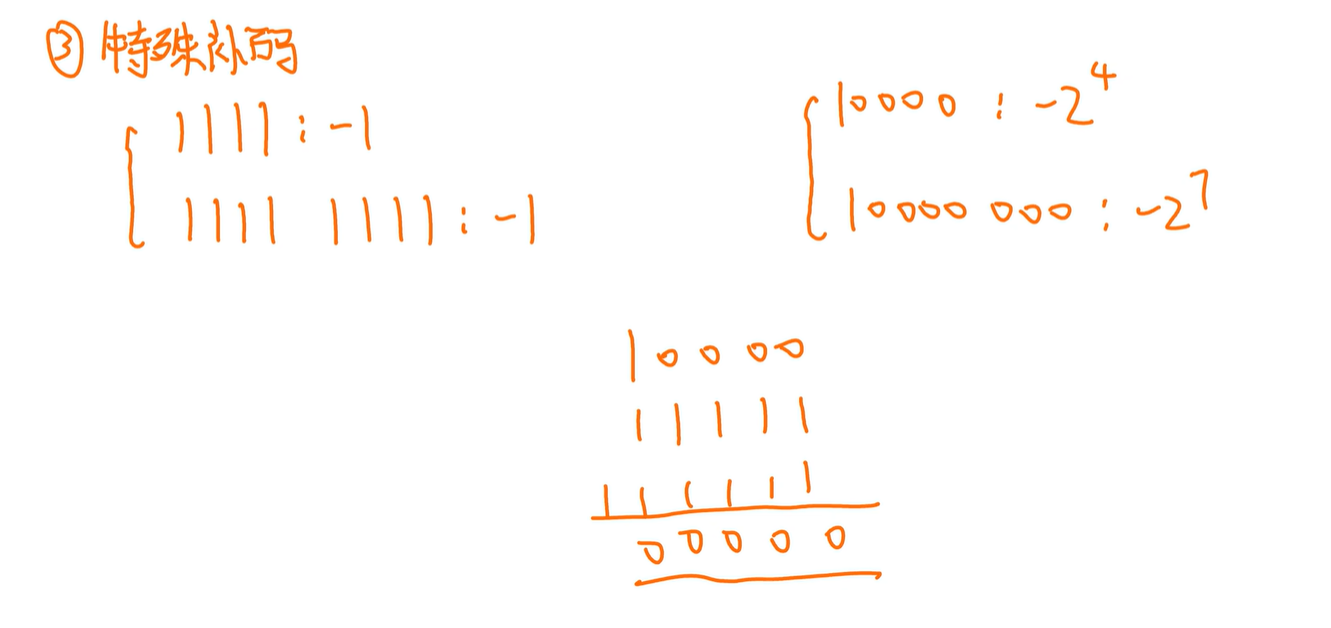 ③ 特殊补码
1111 : -1
1111 1111 : -1
10000 : -2⁴
10000000 : -2⁷
10000
11111
111111
00000